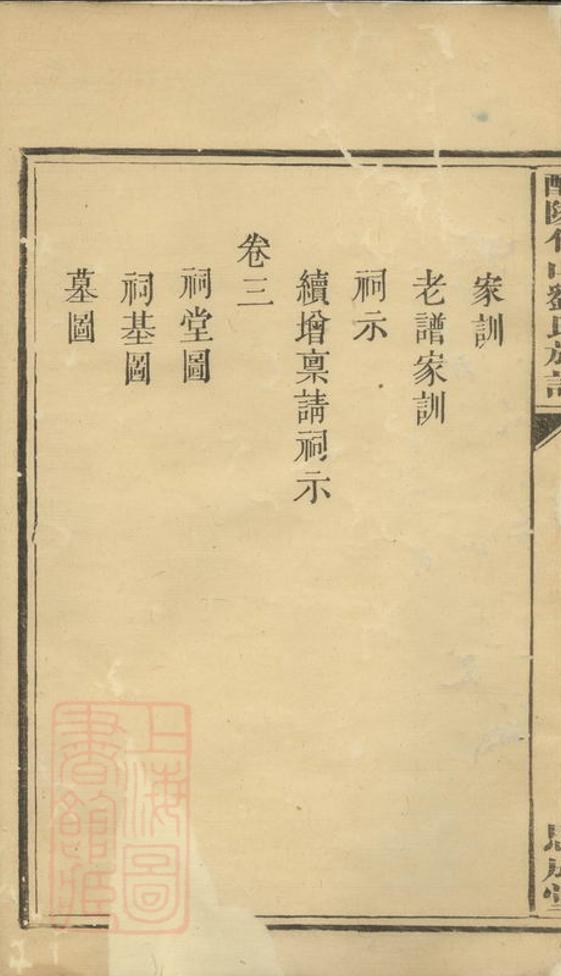 家訓
老譜家訓
祠示
續增稟請祠示
卷三
祠堂圖
祠基圖
墓圖
上海圖
書館藏